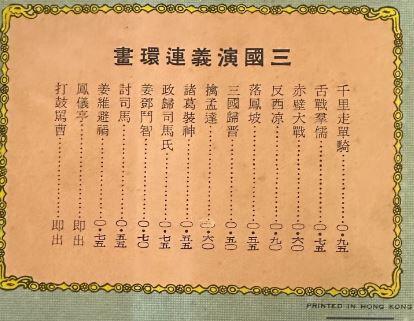 三國演義連環畫
千里走單騎…………〇·九五
舌戰羣儒…………〇·七五
赤壁大戰…………〇·六〇
反西凉…………〇·九〇
落鳳坡…………〇·五五
三國歸晉…………〇·五〇
擒孟達…………〇·六〇
諸葛裝神…………〇·五五
政歸司馬氏…………〇·七〇
姜鄧鬥智…………〇·七〇
討司馬…………〇·五五
姜維避禍…………〇·七五
鳳儀亭…………即出
打鼓駡曹…………即出
PRINTED IN HONG KONG